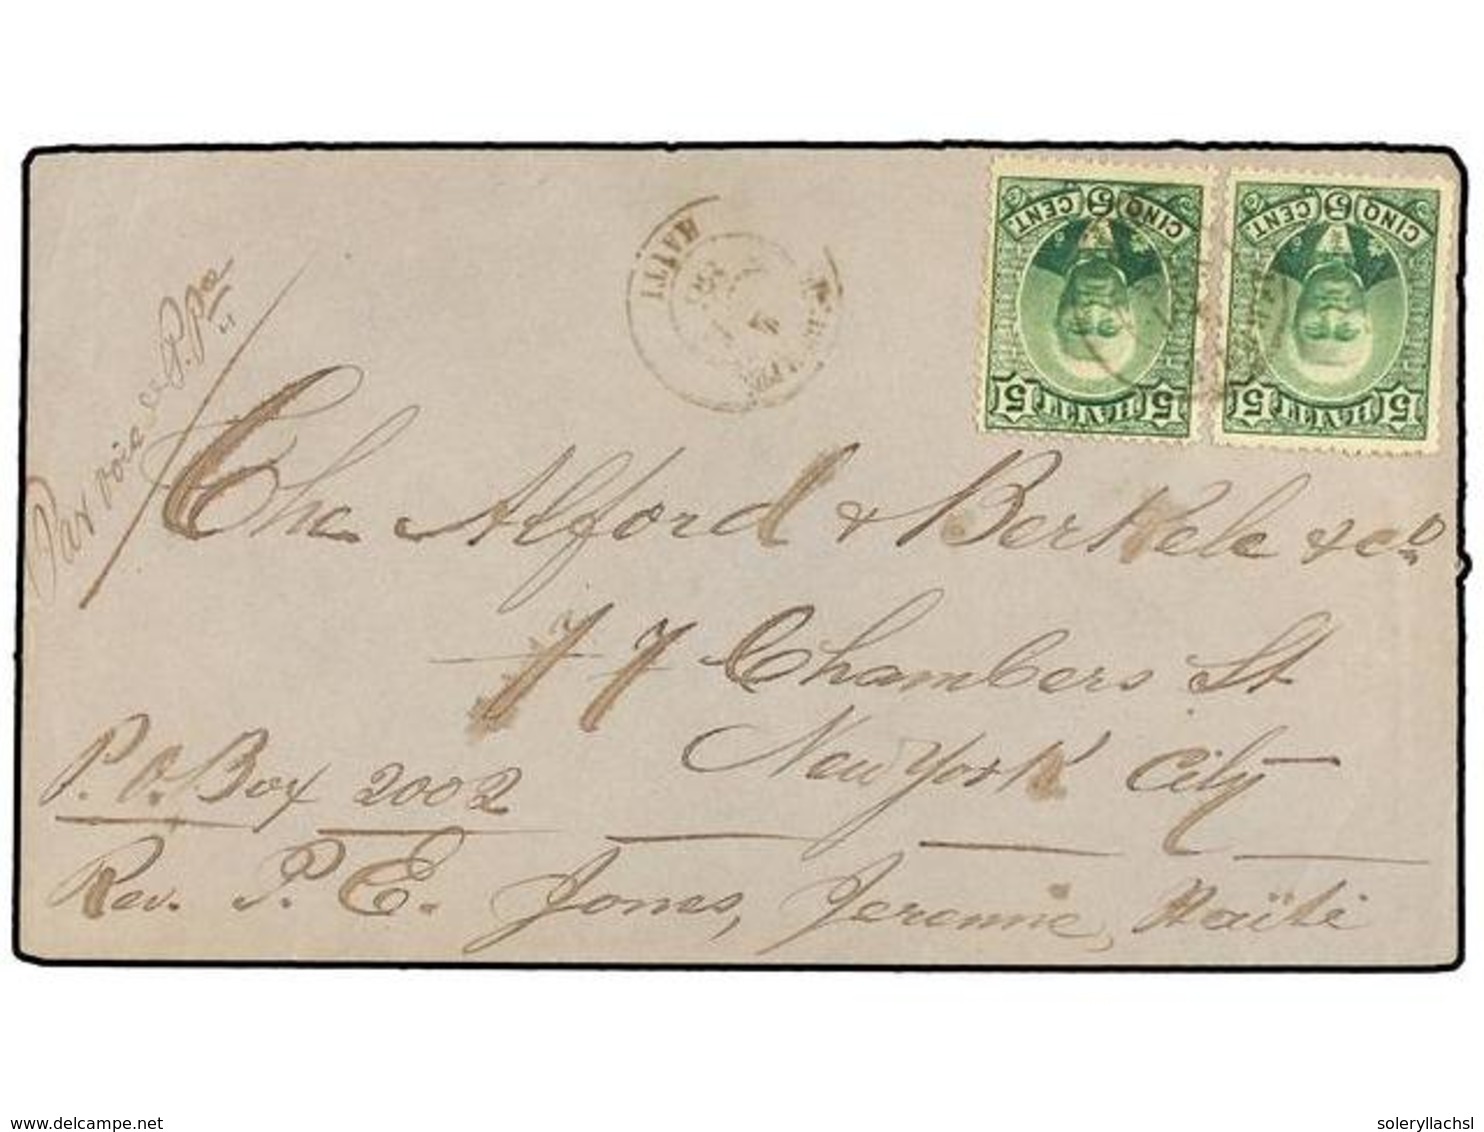 HAITI
CINQ 5 CENT
5 5
CINQ 5 CENT
5 5
Par voie de P. Pce
The Alford & Berkele & Co
77 Chambers St
New York City
P. O. Box 2002
Rev. P. E. Jones, Jeremie, Haïti
www.delcampe.net
soleryllachsl